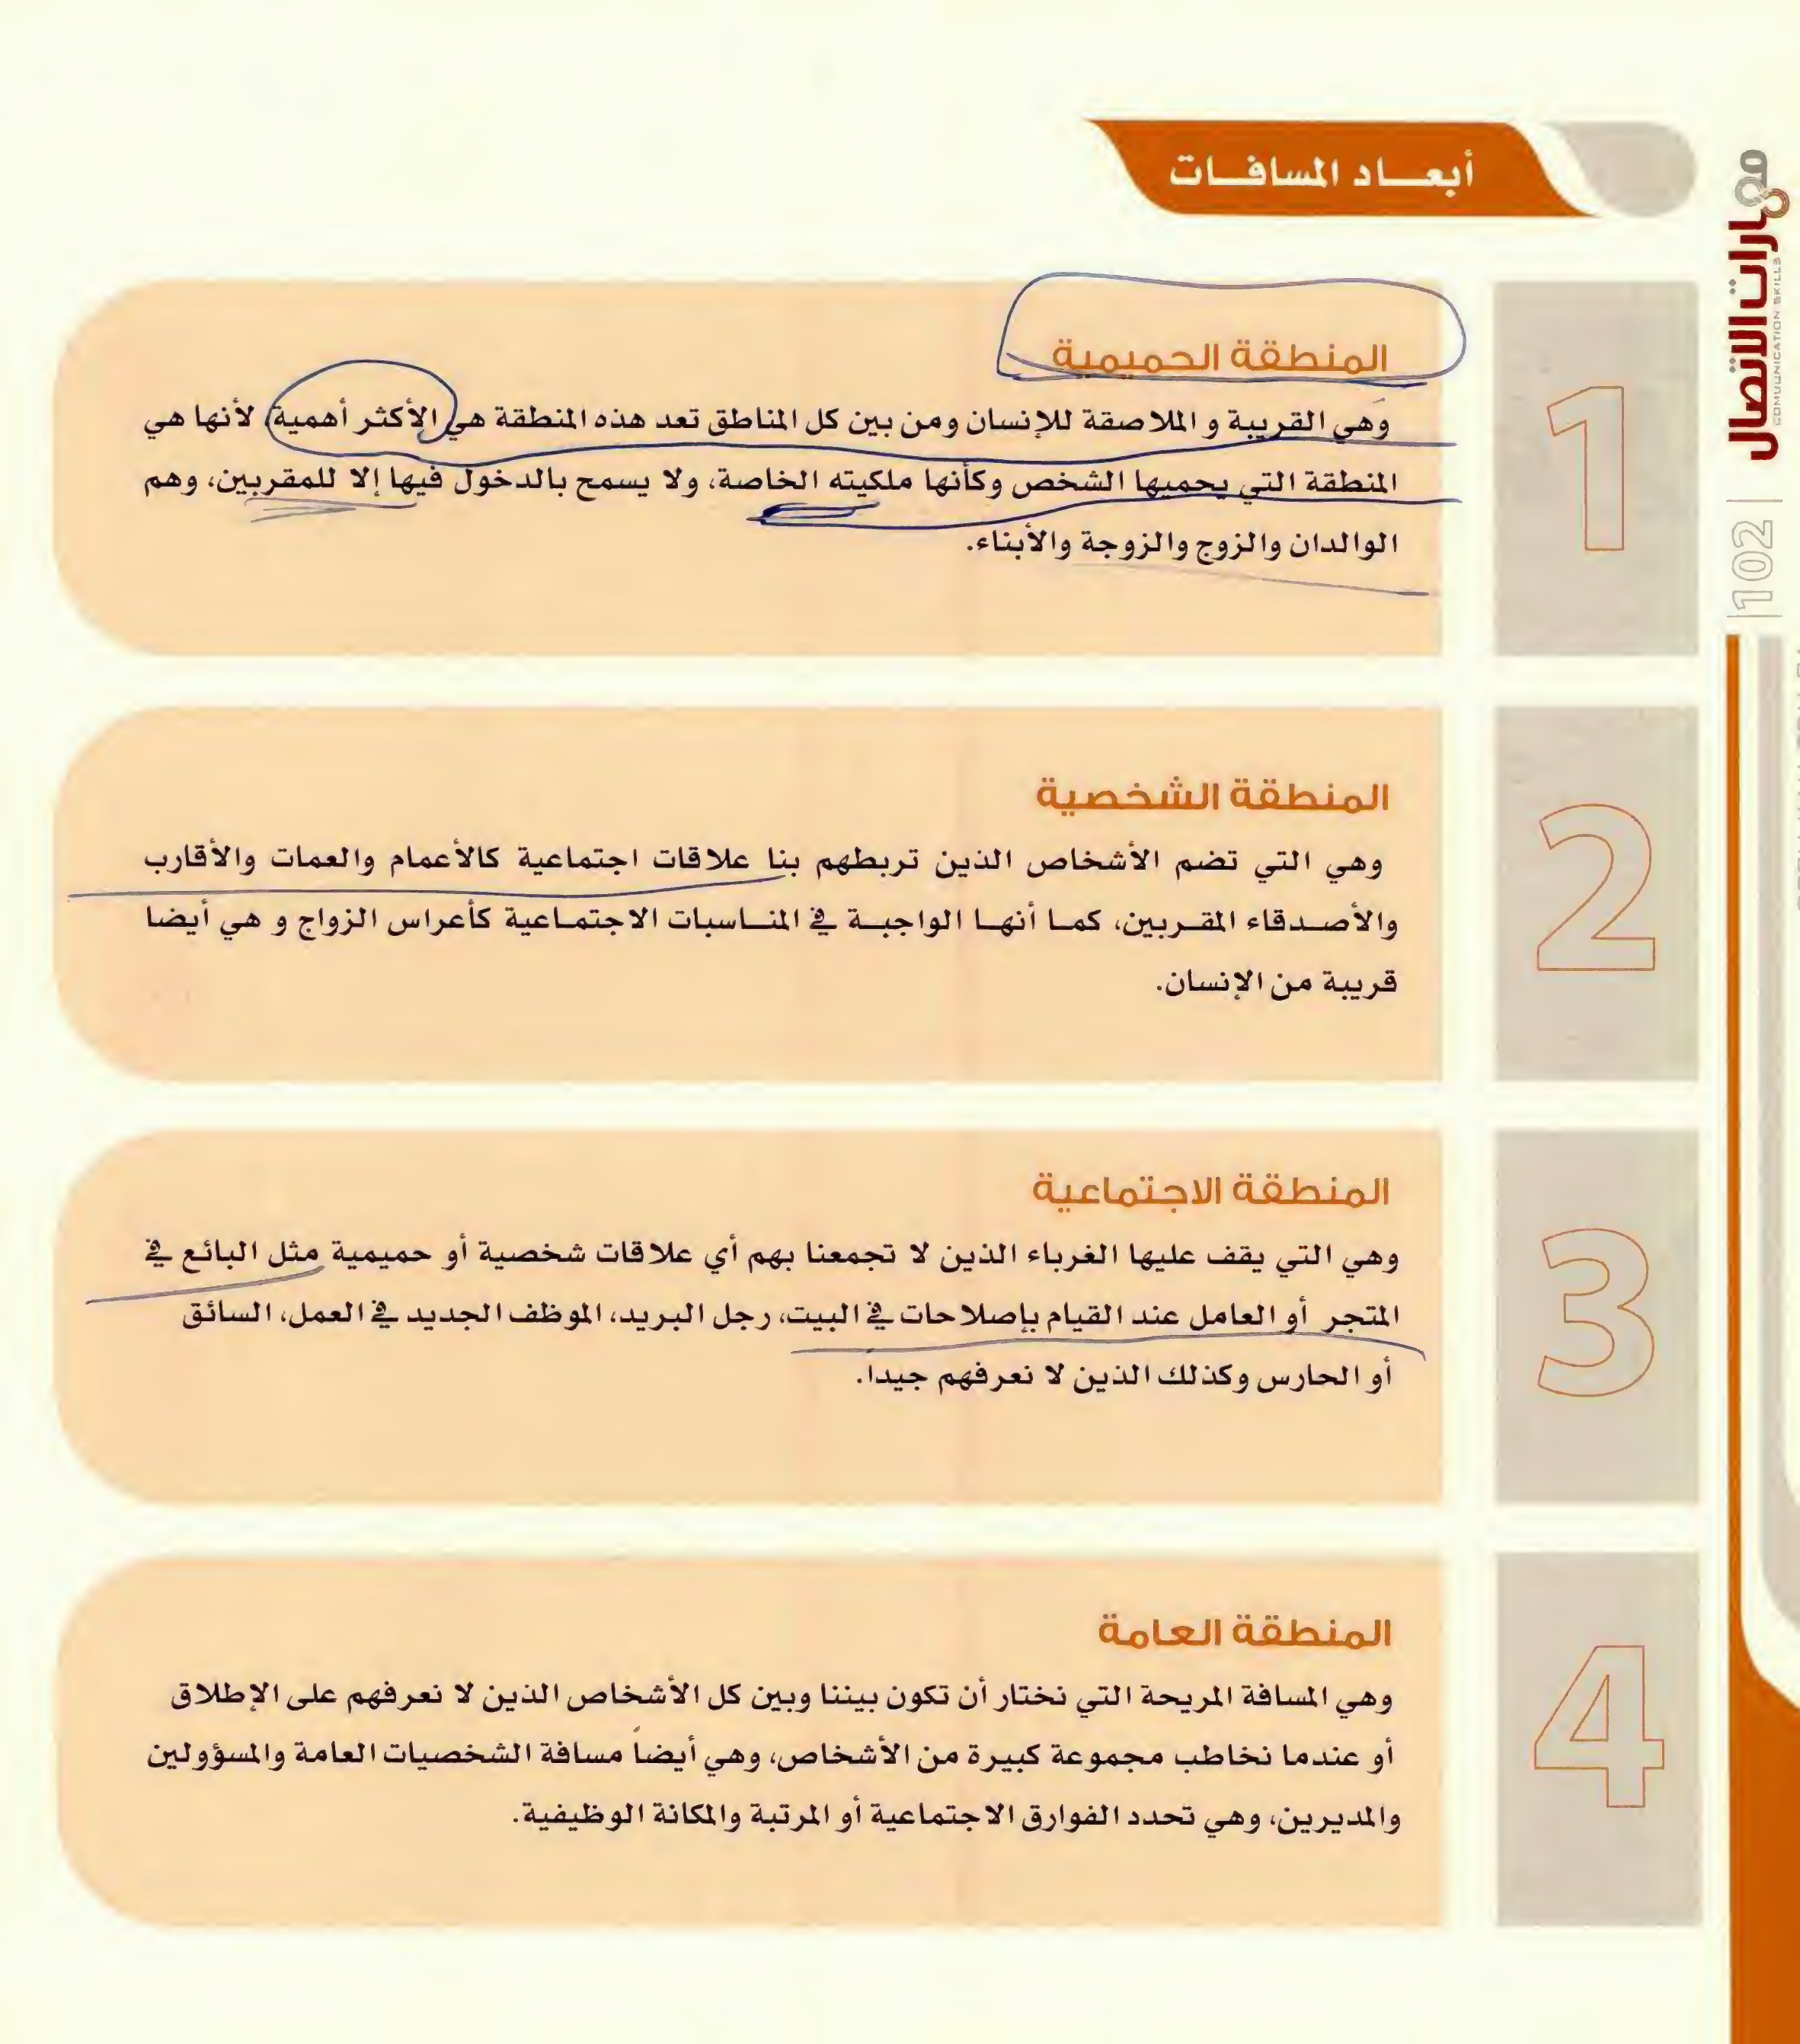 أبعاد المسافات
مهارات الاتصال
COMMUNICATION SKILLS
102
1
المنطقة الحميمية
وهي القريبة و الملاصقة للإنسان ومن بين كل المناطق تعد هذه المنطقة هي الأكثر أهمية لأنها هي
المنطقة التي يحميها الشخص وكأنها ملكيته الخاصة، ولا يسمح بالدخول فيها إلا للمقربين، وهم
الوالدان والزوج والزوجة والأبناء.
2
المنطقة الشخصية
وهي التي تضم الأشخاص الذين تربطهم بنا علاقات اجتماعية كالأعمام والعمات والأقارب
والأصدقاء المقربين، كما أنها الواجبة في المناسبات الاجتماعية كأعراس الزواج و هي أيضا
قريبة من الإنسان.
3
المنطقة الاجتماعية
وهي التي يقف عليها الغرباء الذين لا تجمعنا بهم أي علاقات شخصية أو حميمية مثل البائع في
المتجر أو العامل عند القيام بإصلاحات في البيت، رجل البريد، الموظف الجديد في العمل، السائق
أو الحارس وكذلك الذين لا نعرفهم جيداً.
4
المنطقة العامة
وهي المسافة المريحة التي نختار أن تكون بيننا وبين كل الأشخاص الذين لا نعرفهم على الإطلاق
أو عندما نخاطب مجموعة كبيرة من الأشخاص، وهي أيضاً مسافة الشخصيات العامة والمسؤولين
والمديرين، وهي تحدد الفوارق الاجتماعية أو المرتبة والمكانة الوظيفية.